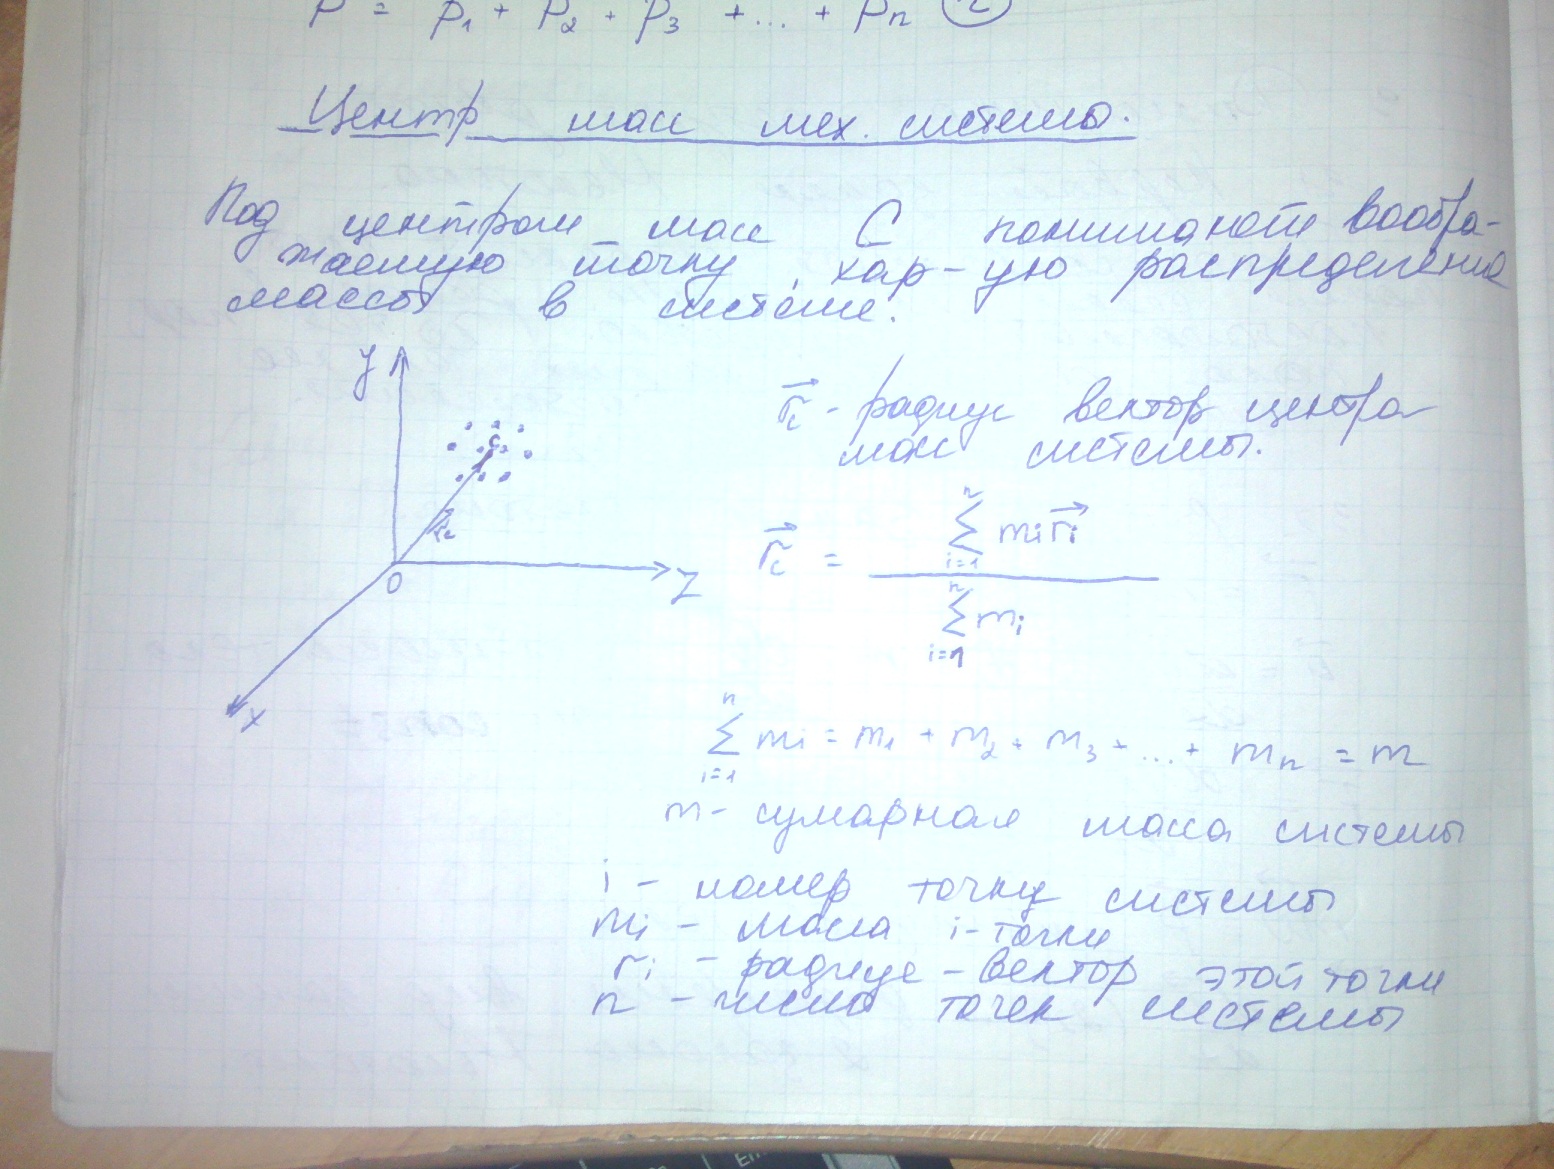 p = p₁ + p₂ + p₃ + ... + pₙ (2)
Центр масс мех. системы.
Под центром масс C понимают вообра-
жаемую точку, хар-ую распределение
массы в системе.
y
r⃗c - радиус вектор центра
масс системы.
C
rc
r⃗c = (∑ᵢ₌₁ⁿ mᵢr⃗ᵢ) / (∑ᵢ₌₁ⁿ mᵢ)
O
z
x
∑ᵢ₌₁ⁿ mᵢ = m₁ + m₂ + m₃ + ... + mₙ = m
m - сумарная масса системы
i - номер точку системы
mᵢ - масса i-точки
rᵢ - радиус-вектор этой точки
n - число точек системы